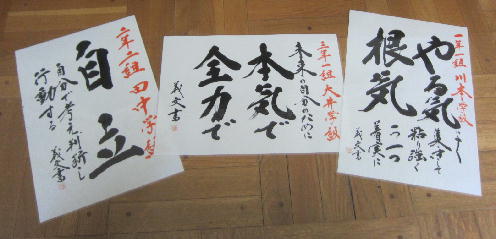 二年二組 田中学級
自立
自分で考え判断し
行動する
義文書
三年一組 大井学級
未来の自分のために
本気で
全力で
義文書
一年一組 川本学級
やる気
根気
集中して
粘り強く
一つ一つ
着実に
義文書